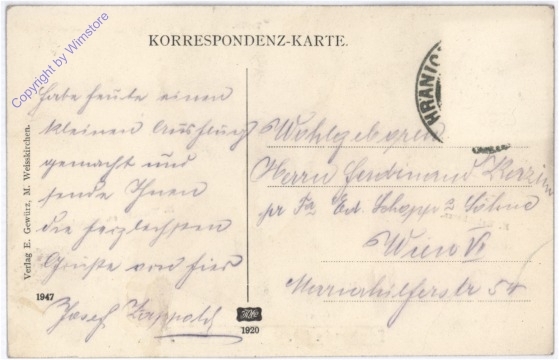 Copyright by Wimstore
KORRESPONDENZ-KARTE.
HRANIC
habe heute einen
kleinen Ausflug
gemacht und
sende Ihnen
die herzlichsten
Grüsse von hier
Josef
Wohlgeboren
Herrn Ferdinand
pr Fa Ed. Schopp Söhne
Wien VI
Mariahilferstr 54
Verlag E. Gewürz, M. Weisskirchen.
1947
1920